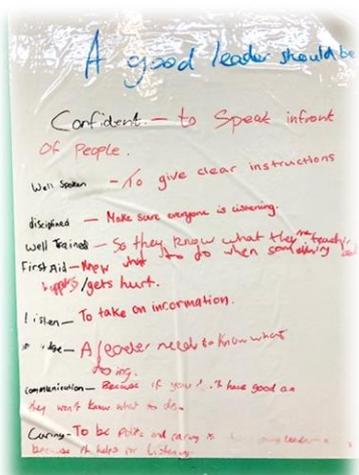 A good leader should be
Confident. — to Speak infront
Of People.
Well Spoken — To give clear instructions
disciplined — Make sure everyone is listening.
Well Trained — So they know what they're teaching
First Aid — to do when something
/gets hurt.
listen — To take on information.
— A leader needs to know what
doing.
Communication — Because if you have good
they won't know what to do.
Caring — To be Polite and caring is
because it helps for listening.